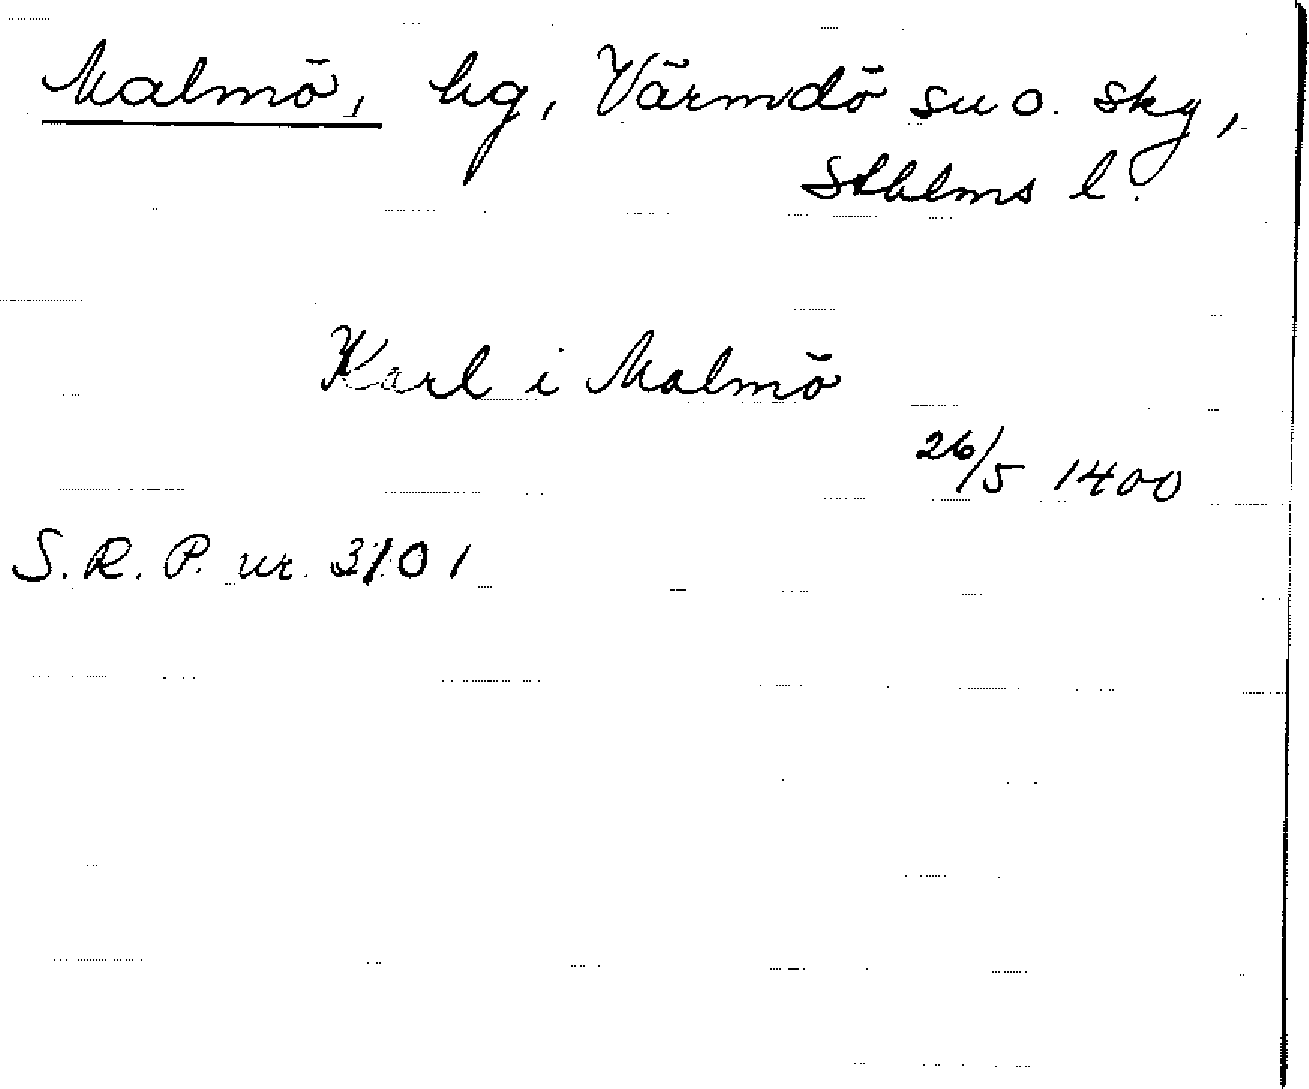 Malmö, hg, Värmdö sn o. skg,
Sthlms l.
Karl i Malmö
26/5 1400
S.R.P. nr. 3101